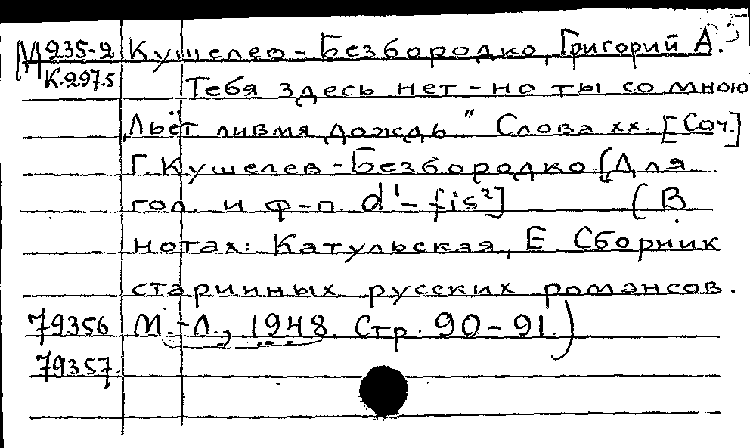 М235-2 Кушелев-Безбородко, Григорий А.
К.297.5 Тебя здесь нет - но ты со мною
„Льёт ливмя дождь" Слова хх. [Соч.]
Г. Кушелев-Безбородко [Для
гол. и ф-п. d¹-fis²] (В
нотах: Катульская, Е. Сборник
старинных русских романсов.
79356 М.-Л., 1948. Стр. 90-91.)
79357.